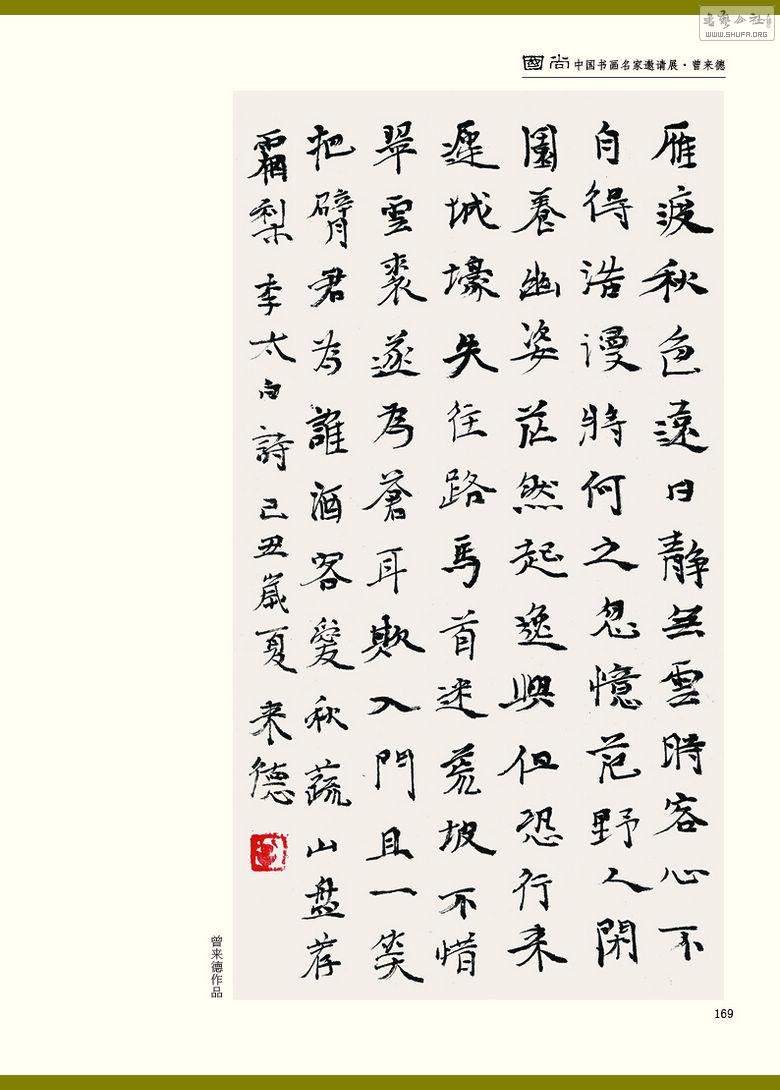 書藝公社
WWW.SHUFA.ORG
國尚 中国书画名家邀请展·曾来德
雁渡秋色遠日靜無雲時客心不
自得浩漫將何之忽憶范野人閑
園養幽姿茫然起逸興但恐行来
遲城壕失往路馬首迷荒坡不惜
翠雲裘遂為蒼耳欺入門且一笑
把臂君為誰酒客愛秋蔬山盤荐
霜梨 李太白詩 己丑歲夏 来德
曾来德作品
169